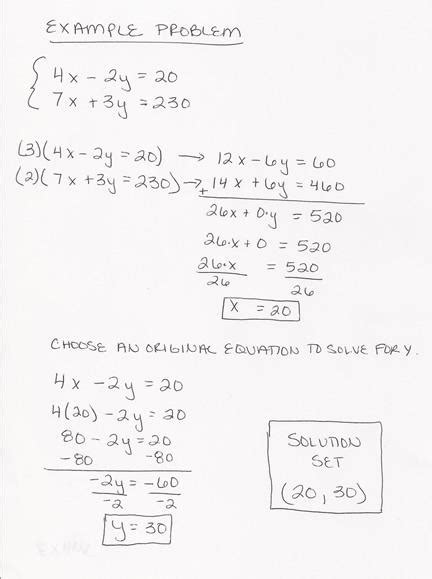 EXAMPLE PROBLEM
4x - 2y = 20
7x + 3y = 230
(3)(4x - 2y = 20) → 12x - 6y = 60
(2)(7x + 3y = 230) → + 14x + 6y = 460
26x + 0·y = 520
26·x + 0 = 520
26·x = 520
26 26
x = 20
CHOOSE AN ORIGINAL EQUATION TO SOLVE FOR Y.
4x - 2y = 20
4(20) - 2y = 20
80 - 2y = 20
-80 -80
-2y = -60
-2 -2
y = 30
SOLUTION
SET
(20, 30)